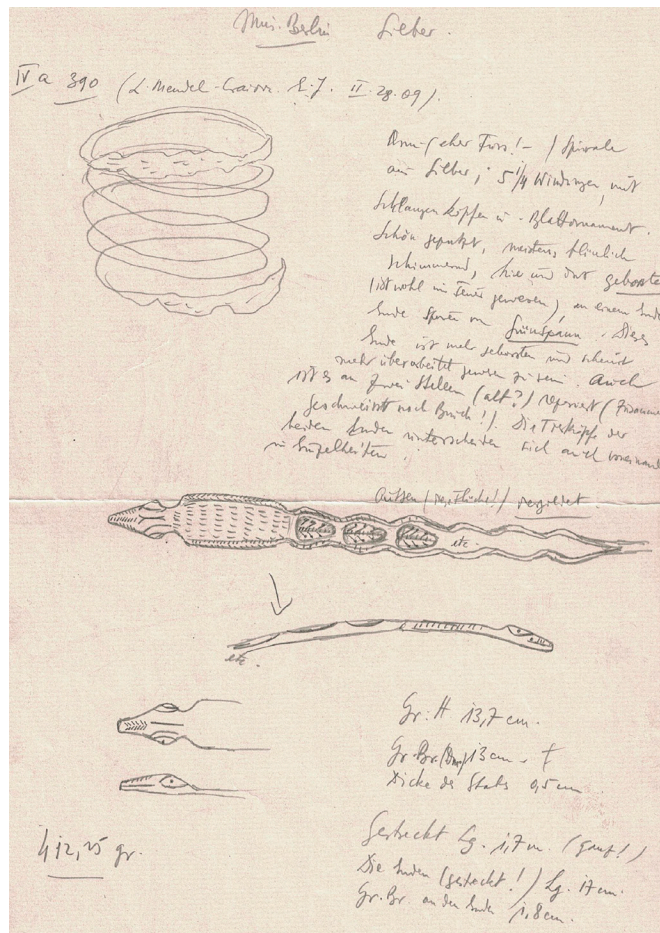 Mus. Berlin Silber.
IV a 390 (L. Mendel- E. J. II. 28. 09).
Arm- oder Fuss! - / Spirale
aus Silber; 5 1/4 Windungen, mit
Schlangenköpfen u. Blattornament.
Schön geputzt, meistens bläulich
schimmernd, hie und dort geborsten
(ist wohl im Feuer gewesen), an einem Ende
Ende Spuren von Grünspann. Dieses
Ende ist mehr geborsten und scheint
mehr überarbeitet gewesen zu sein. Auch
ist es an zwei Stellen (alt?) repariert (
geschweisst nach Bruch!). Die Tierköpfe der
beiden Enden unterscheiden sich auch voneinand
in Einzelheiten.
Aussen vergoldet
etc.
etc.
Gr. H 13,7 cm.
Gr. Br. 13 cm.
Dicke des Stabs 0,5 cm
412,25 gr.
Gestreckt Lg. 1,7 m. (ganz!)
Die Enden (gestreckt!) Lg. 17 cm.
Gr. Br. an den Enden 1,8 cm.